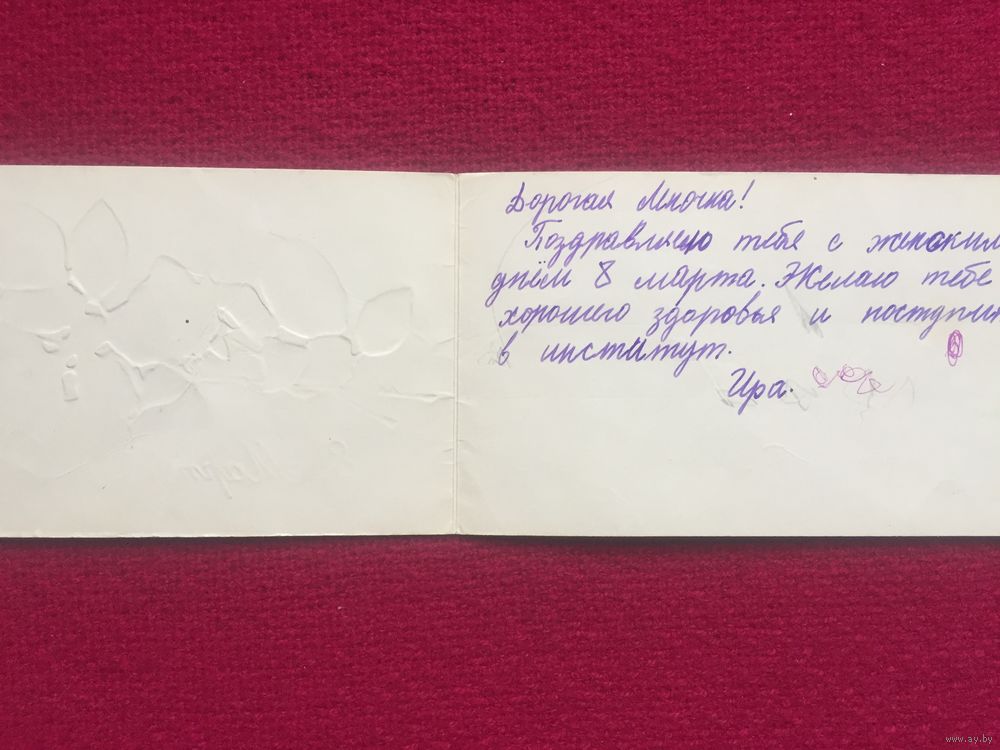 Дорогая Леночка!
Поздравляю тебя с женским
днём 8 марта. Желаю тебе
хорошего здоровья и поступи
в институт.
Ира.
www.ay.by